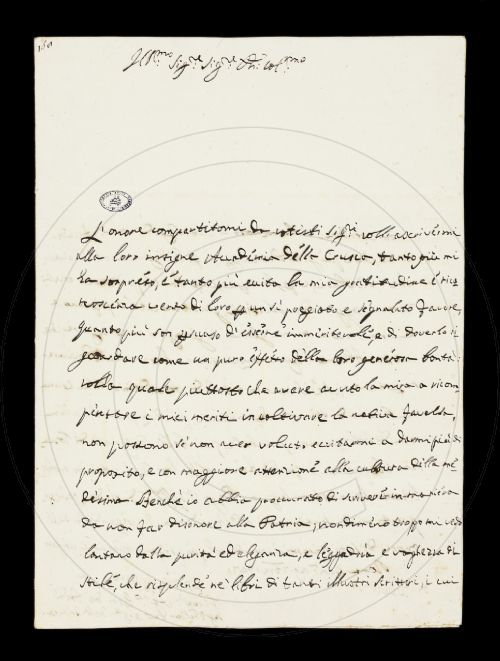 Ill.mo Sig.re Sig.re Pn. Col.mo
L'onore compartitomi da cotesti Sig.ri coll'ascrivermi
alla loro insigne Accademia della Crusca, tanto più mi
ha sorpreso, e tanto più eccita la mia gratitudine e rico
noscenza verso di loro per un sì pregiato e segnalato favore,
quanto più son persuaso d'esserne immeritevole, e di doverlo ri
guardare come un puro effetto della loro generosa bontà,
colla quale piuttosto che avere avuto la mira a ricom
pensare i miei meriti in coltivare la nativa favella,
non possono se non aver voluto eccitarmi a darmi più di
proposito, e con maggiore attenzione alla cultura della me
desima. Benchè io abbia proccurato di scrivere in maniera
da non far disonore alla Patria, nondimeno troppo mi vedo
lontano dalla purità ed eleganza, e leggiadria e vaghezza di
stile, che risplende ne' libri di tanti illustri Scrittori, i cui